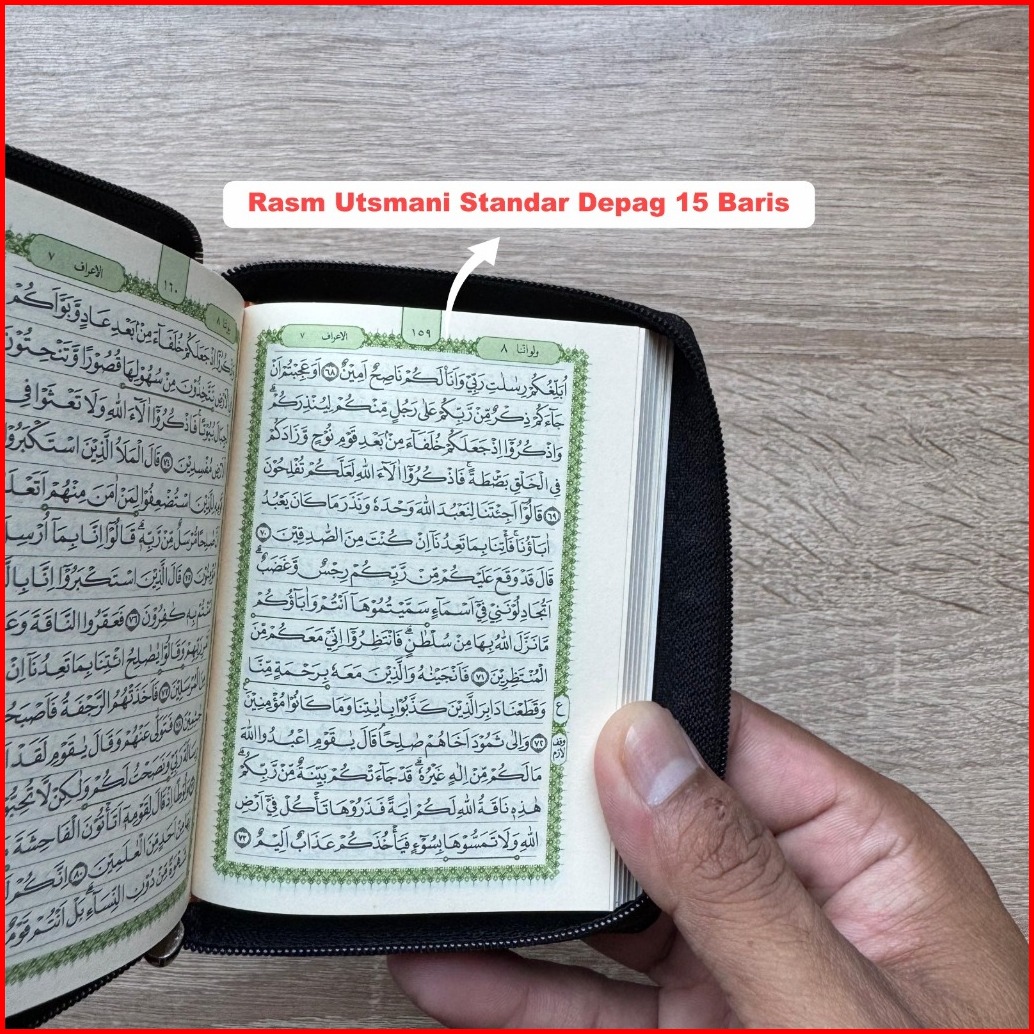 Rasm Utsmani Standar Depag 15 Baris
ولواننا ٨
١٥٩
الاعراف ٧
اُبَلِّغُكُمْ رِسٰلٰتِ رَبِّيْ وَاَنَا۠ لَكُمْ نَاصِحٌ اَمِيْنٌ ٦٨ اَوَعَجِبْتُمْ اَنْ
جَاۤءَكُمْ ذِكْرٌ مِّنْ رَّبِّكُمْ عَلٰى رَجُلٍ مِّنْكُمْ لِيُنْذِرَكُمْۗ
وَاذْكُرُوْٓا اِذْ جَعَلَكُمْ خُلَفَاۤءَ مِنْۢ بَعْدِ قَوْمِ نُوْحٍ وَّزَادَكُمْ
فِى الْخَلْقِ بَصْۣطَةً ۚفَاذْكُرُوْٓا اٰلَاۤءَ اللّٰهِ لَعَلَّكُمْ تُفْلِحُوْنَ
٦٩ قَالُوْٓا اَجِئْتَنَا لِنَعْبُدَ اللّٰهَ وَحْدَهٗ وَنَذَرَ مَا كَانَ يَعْبُدُ
اٰبَاۤؤُنَاۚ فَأْتِنَا بِمَا تَعِدُنَآ اِنْ كُنْتَ مِنَ الصّٰدِقِيْنَ ٧٠
قَالَ قَدْ وَقَعَ عَلَيْكُمْ مِّنْ رَّبِّكُمْ رِجْسٌ وَّغَضَبٌۗ
اَتُجَادِلُوْنَنِيْ فِيْٓ اَسْمَاۤءٍ سَمَّيْتُمُوْهَآ اَنْتُمْ وَاٰبَاۤؤُكُمْ
مَّا نَزَّلَ اللّٰهُ بِهَا مِنْ سُلْطٰنٍۗ فَانْتَظِرُوْٓا اِنِّيْ مَعَكُمْ مِّنَ
الْمُنْتَظِرِيْنَ ٧١ فَاَنْجَيْنٰهُ وَالَّذِيْنَ مَعَهٗ بِرَحْمَةٍ مِّنَّا
وَقَطَعْنَا دَابِرَ الَّذِيْنَ كَذَّبُوْا بِاٰيٰتِنَا وَمَا كَانُوْا مُؤْمِنِيْنَ
ع
٧٢ وَاِلٰى ثَمُوْدَ اَخَاهُمْ صٰلِحًا قَالَ يٰقَوْمِ اعْبُدُوا اللّٰهَ
وقف لازم
مَا لَكُمْ مِّنْ اِلٰهٍ غَيْرُهٗۗ قَدْ جَاۤءَتْكُمْ بَيِّنَةٌ مِّنْ رَّبِّكُمْۗ
هٰذِهٖ نَاقَةُ اللّٰهِ لَكُمْ اٰيَةً فَذَرُوْهَا تَأْكُلْ فِيْٓ اَرْضِ
اللّٰهِ وَلَا تَمَسُّوْهَا بِسُوْۤءٍ فَيَأْخُذَكُمْ عَذَابٌ اَلِيْمٌ ٧٣
ولواننا ٨
١٦٠
الاعراف ٧
اِذْ جَعَلَكُمْ خُلَفَاۤءَ مِنْۢ بَعْدِ عَادٍ وَّبَوَّاَكُمْ
تَتَّخِذُوْنَ مِنْ سُهُوْلِهَا قُصُوْرًا وَّتَنْحِتُوْنَ
بُيُوْتًاۚ فَاذْكُرُوْٓا اٰلَاۤءَ اللّٰهِ وَلَا تَعْثَوْا فِى
مُفْسِدِيْنَ ٧٤ قَالَ الْمَلَاُ الَّذِيْنَ اسْتَكْبَرُوْا
لِلَّذِيْنَ اسْتُضْعِفُوْا لِمَنْ اٰمَنَ مِنْهُمْ
مُّرْسَلٌ مِّنْ رَّبِّهٖۗ قَالُوْٓا اِنَّا بِمَآ
٧٥ قَالَ الَّذِيْنَ اسْتَكْبَرُوْٓا اِنَّا
بِهٖ كٰفِرُوْنَ ٧٦ فَعَقَرُوا النَّاقَةَ
وَقَالُوْا يٰصٰلِحُ ائْتِنَا بِمَا تَعِدُنَآ اِنْ
الْمُرْسَلِيْنَ ٧٧ فَاَخَذَتْهُمُ الرَّجْفَةُ
٧٨ فَتَوَلّٰى عَنْهُمْ وَقَالَ يٰقَوْمِ لَقَدْ
رَبِّيْ وَنَصَحْتُ لَكُمْ وَلٰكِنْ لَّا
اِذْ قَالَ لِقَوْمِهٖٓ اَتَأْتُوْنَ الْفَاحِشَةَ
مِنْ اَحَدٍ مِّنَ الْعٰلَمِيْنَ ٨٠ اِنَّكُمْ
مِّنْ دُوْنِ النِّسَاۤءِۗ بَلْ اَنْتُمْ قَوْمٌ